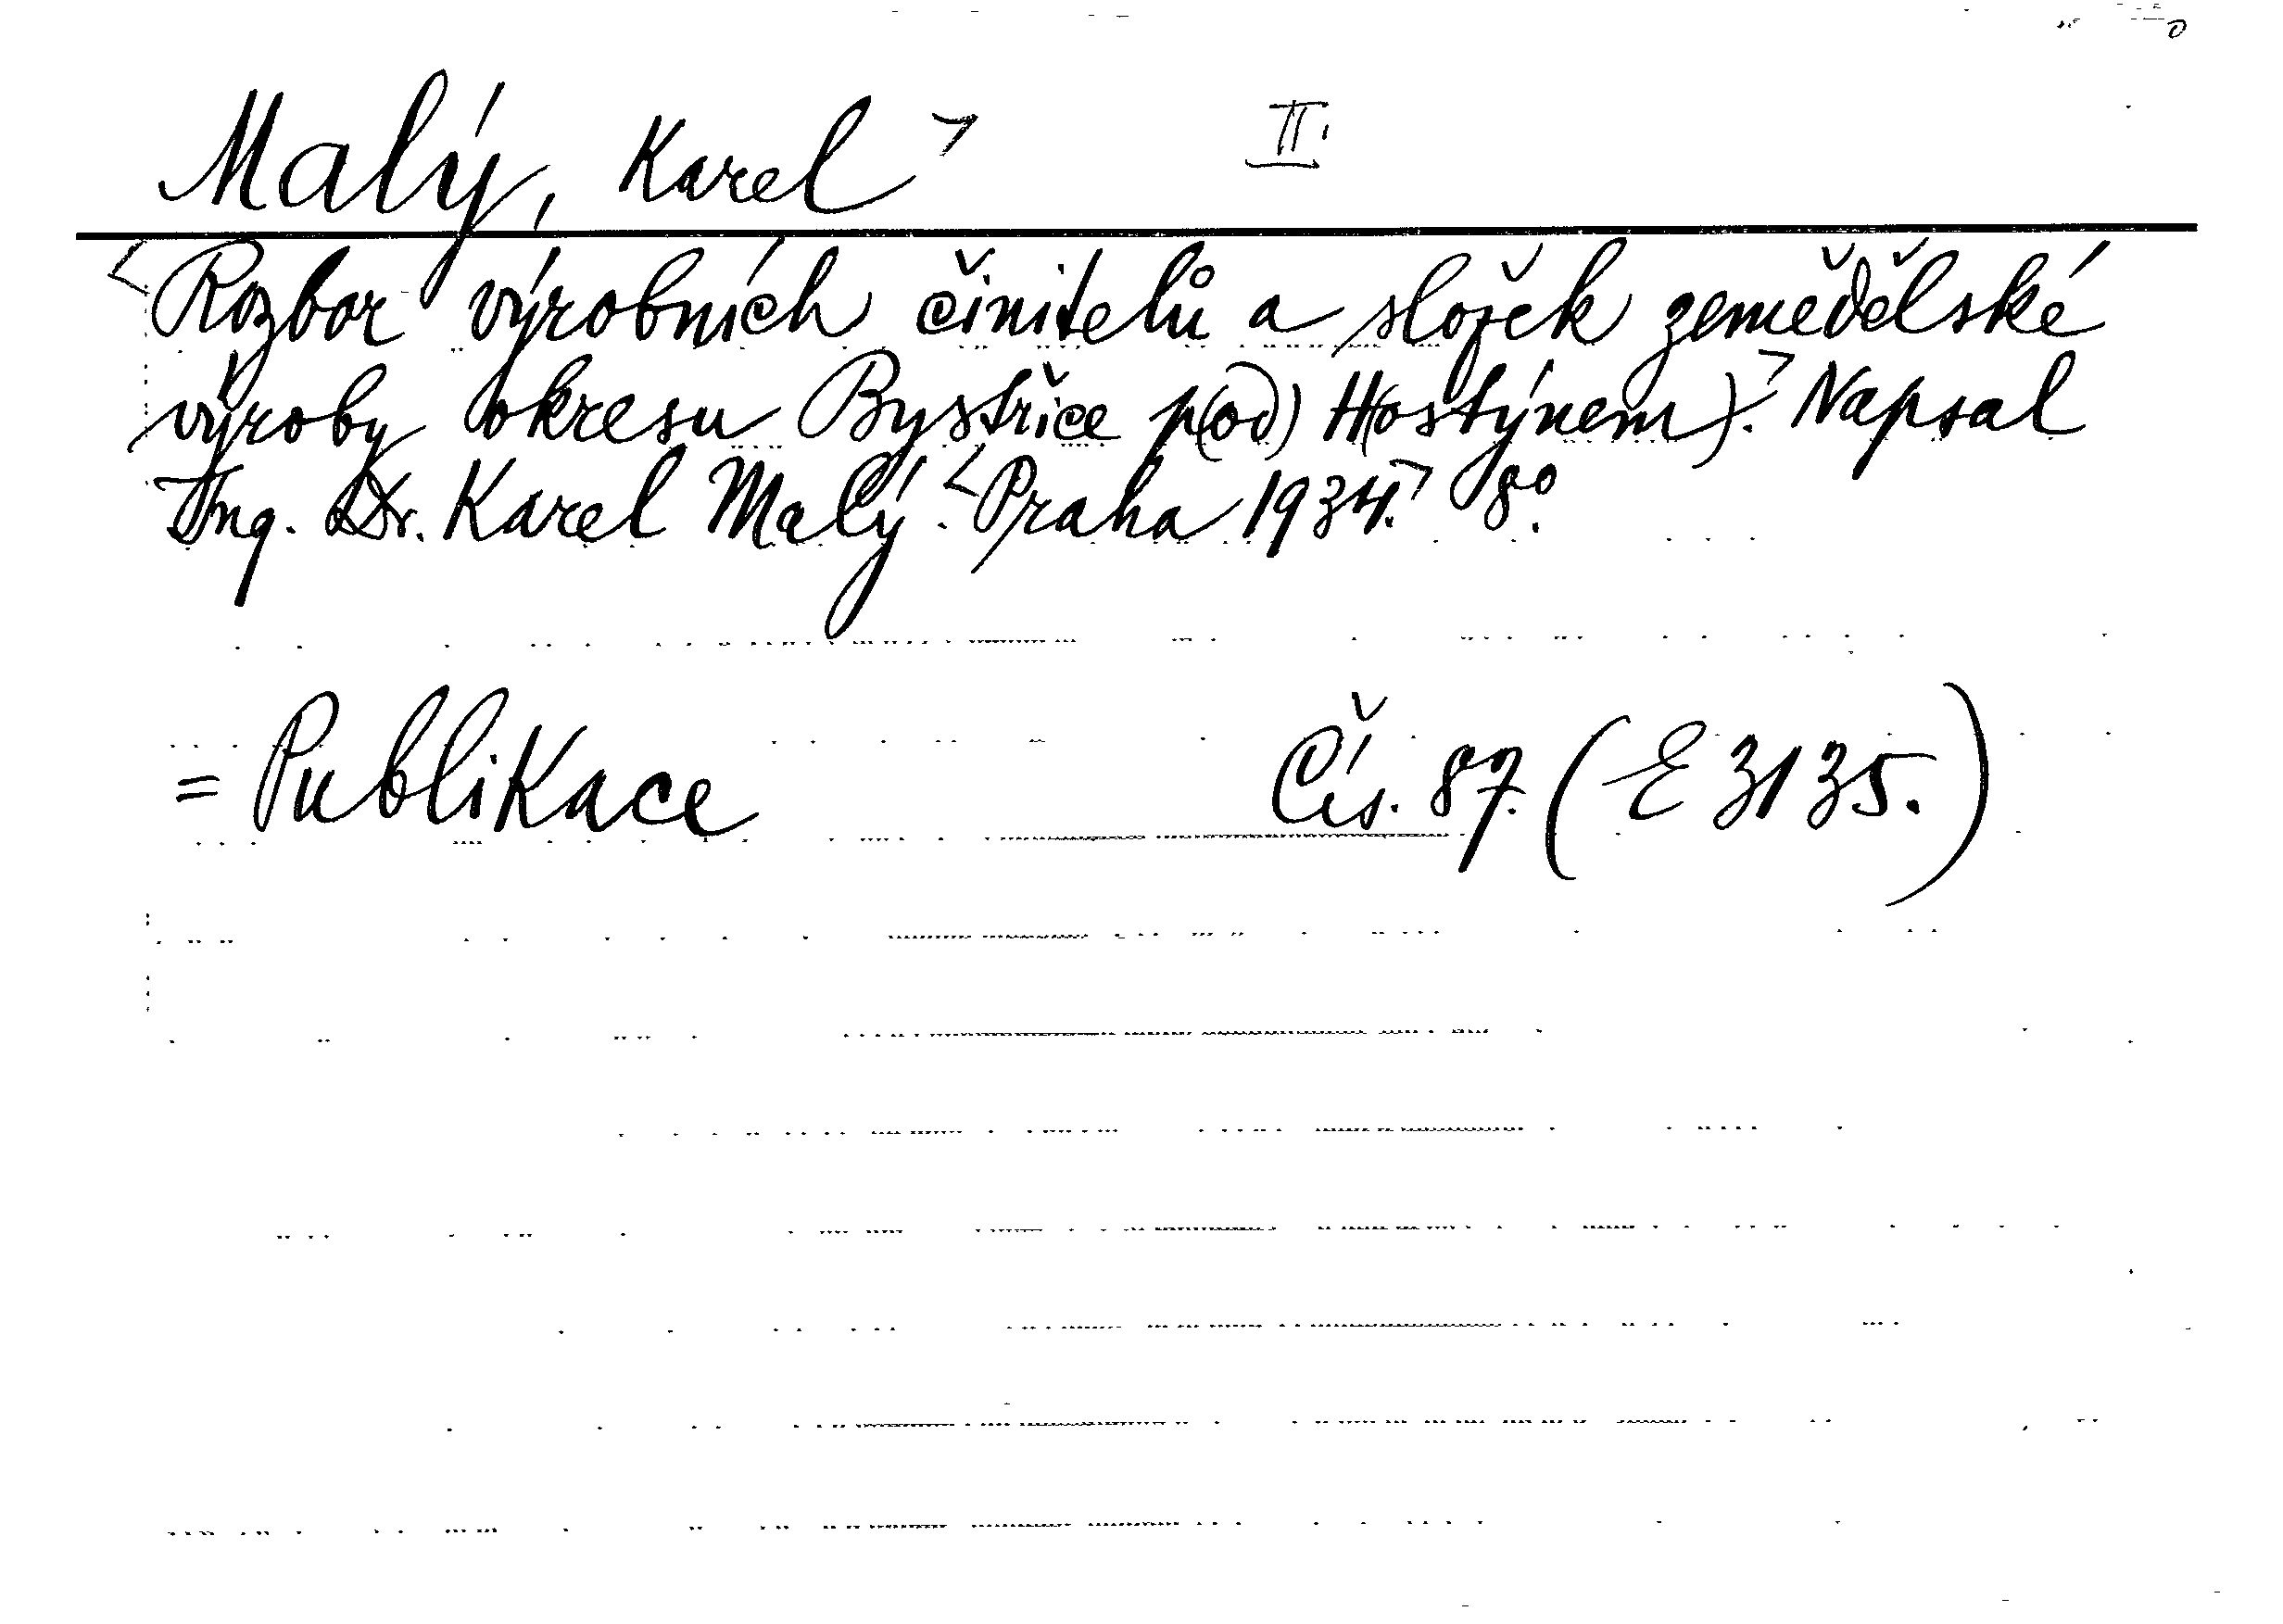 Malý, Karel> II.
<Rozbor výrobních činitelů a složek zemědělské
výroby okresu Bystřice p(od) H(ostýnem).> Napsal
Ing. Dr. Karel Malý. <Praha 1934.> 8°.
= Publikace Čís. 87. (E 3135.)